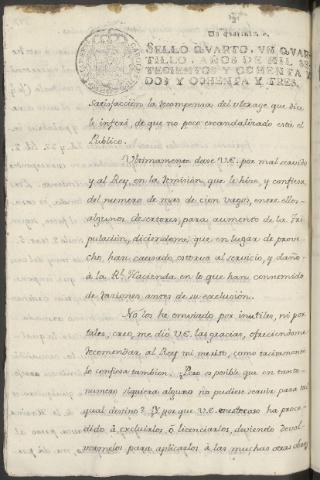 Un quartillo.
SELLO QVARTO, VN QVAR-
TILLO, AÑOS DE MIL SE-
TECIENTOS Y OCHENTA Y
DOS Y OCHENTA Y TRES.
satisfacción la recompensa del ultrage que dice
le inferí, de que no poco escandalizado está el
Publico.
Ultimamente dase V.E. por mal servido
y al Rey, en la remision, que le hice, y confiesa
del numero de mas de cien vagos, entre ellos
algunos desertores, para aumento de la Tri-
pulación, diciendome, que en lugar de prove-
cho han causado estorvo al servicio, y daño
à la Rl. Hacienda en lo que han consumido
de raciones antes de su exclusion.
No los he enviado por inutiles, ni por
tales, creo, me dió V.E. las gracias, ofreciendome
recomendar al Rey mi merito, como tacitamente
lo confiesa tambien. ¿Pero es posible que en tanto
numero siquiera alguno no pudiese servir para tal
qual destino? Y por que V.E. ha proce-
dido à excluirlos ò licenciarlos, deviendo devol-
vermelos para aplicarlos à las muchas otras obras